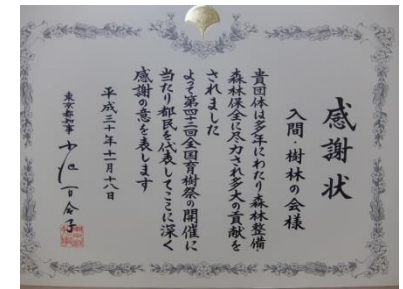 感謝状
入間・樹林の会様
貴団体は多年にわたり森林整備・
森林保全に尽力され多大の貢献を
されました
よって第四十二回全国育樹祭の開催に
当たり都民を代表してここに深く
感謝の意を表します
平成三十年十一月十八日
東京都知事 小池百合子